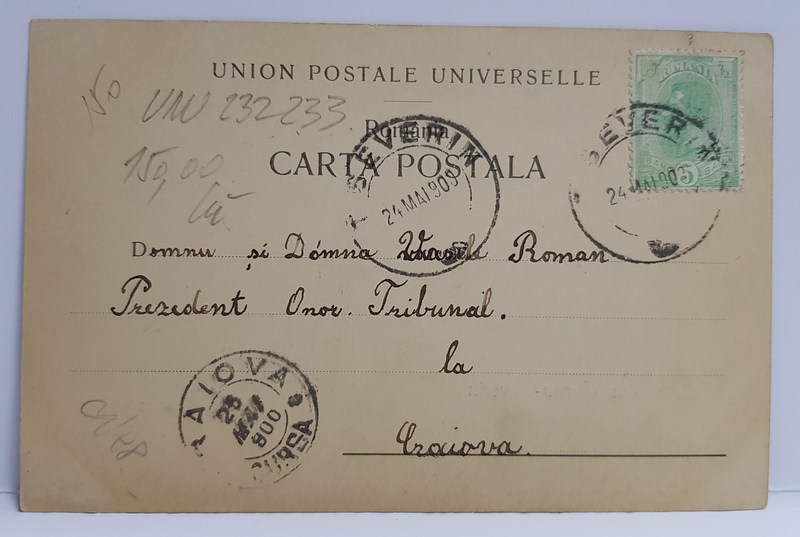 UNION POSTALE UNIVERSELLE
150
VNV 232 233
România
CARTA POSTALA
150,00
SEVERIN
24 MAI 900
SEVERIN
24 MAI 900
ROMANIA
5
Domnu și Dómna Vasile Roman
Prezedent Onor. Tribunal.
la
Craiova.
CRAIOVA
25 MAI 900
CURSA